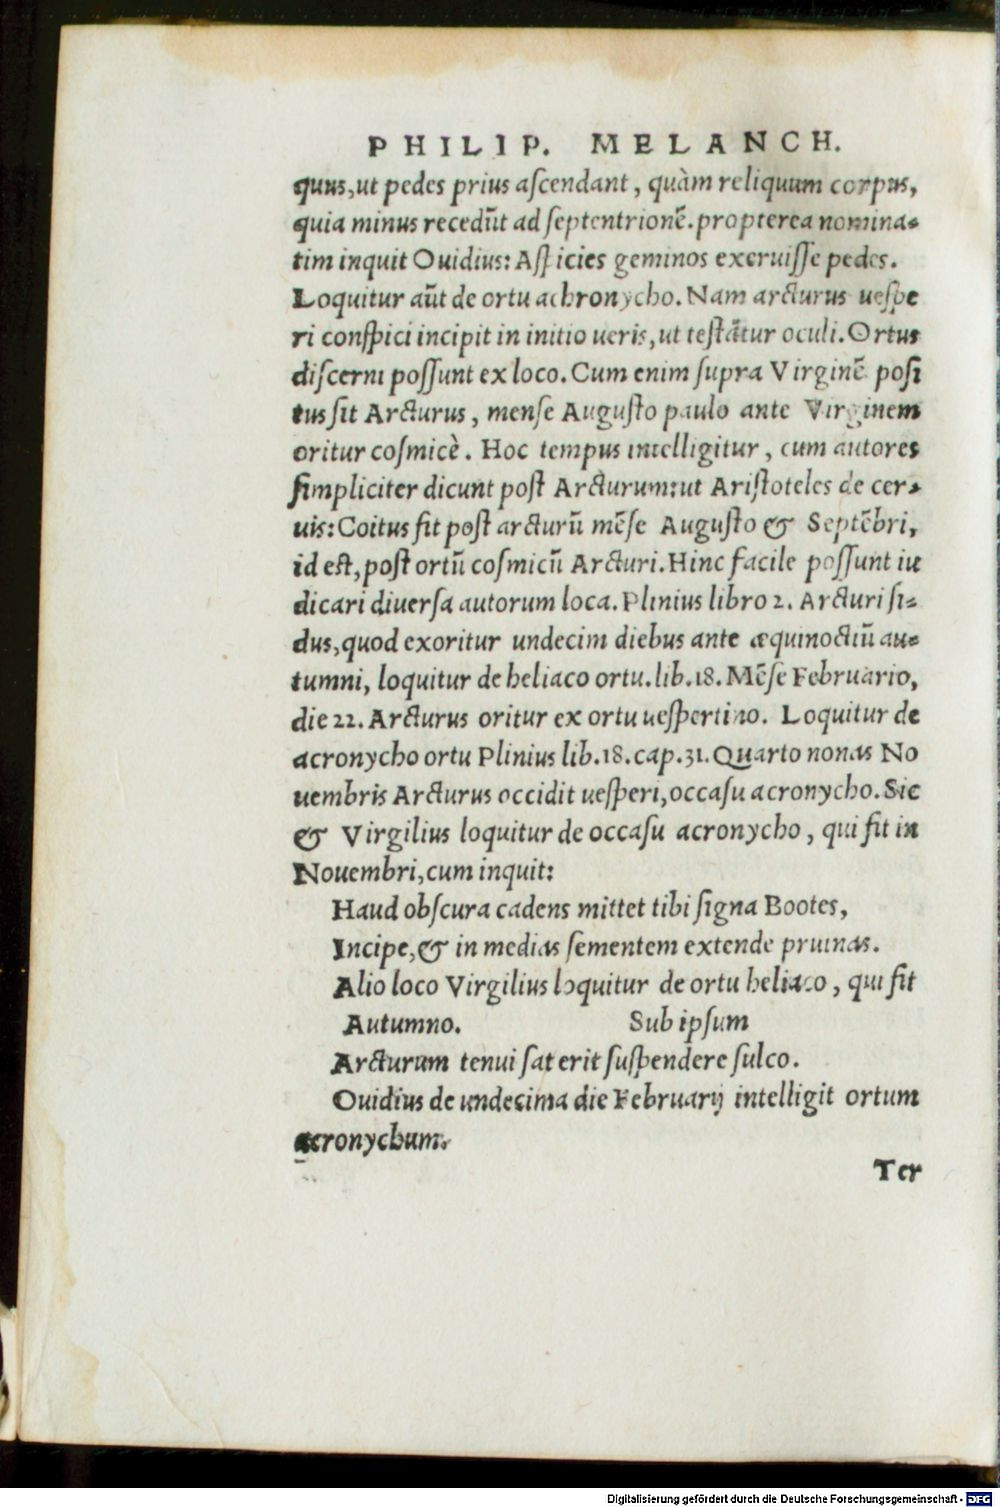 PHILIP. MELANCH.
quus, ut pedes prius aſcendant, quàm reliquum corpus,
quia minus recedũt ad ſeptentrionẽ. propterea nomina-
tim inquit Ouidius: Aſpicies geminos exeruiſſe pedes.
Loquitur aũt de ortu achronycho. Nam arcturus ueſpe
ri conſpici incipit in initio ueris, ut teſtãtur oculi. Ortus
diſcerni poſſunt ex loco. Cum enim ſupra Virginẽ poſi
tus ſit Arcturus, menſe Auguſto paulo ante Virginem
oritur coſmicè. Hoc tempus intelligitur, cum autores
ſimpliciter dicunt poſt Arcturum: ut Ariſtoteles de cer-
uis: Coitus fit poſt arcturũ mẽſe Auguſto & Septẽbri,
id eſt, poſt ortũ coſmicũ Arcturi. Hinc facile poſſunt iu
dicari diuerſa autorum loca. Plinius libro 2. Arcturi ſi-
dus, quod exoritur undecim diebus ante æquinoctiũ au-
tumni, loquitur de heliaco ortu. lib. 18. Mẽſe Februario,
die 22. Arcturus oritur ex ortu ueſpertino. Loquitur de
acronycho ortu Plinius lib. 18. cap. 31. Quarto nonas No
uembris Arcturus occidit ueſperi, occaſu acronycho. Sic
& Virgilius loquitur de occaſu acronycho, qui fit in
Nouembri, cum inquit:
Haud obſcura cadens mittet tibi ſigna Bootes,
Incipe, & in medias ſementem extende pruinas.
Alio loco Virgilius loquitur de ortu heliaco, qui fit
Autumno. Sub ipſum
Arcturum tenui ſat erit ſuſpendere ſulco.
Ouidius de undecima die Februarij intelligit ortum
acronychum.
Ter
Digitalisierung gefördert durch die Deutsche Forschungsgemeinschaft - DFG